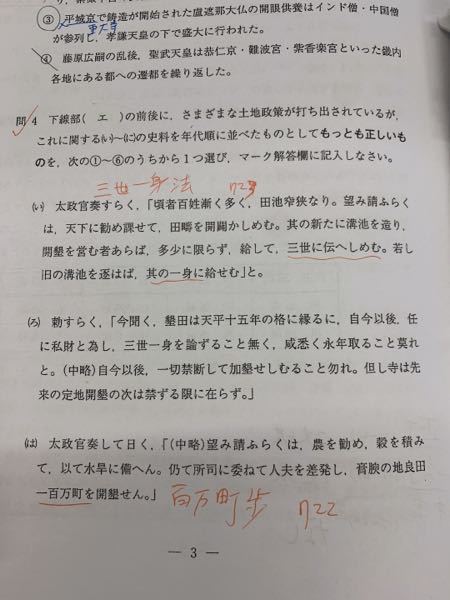 ③ 平城京で鋳造が開始された盧遮那大仏の開眼供養はインド僧・中国僧
東大寺
が参列し，孝謙天皇の下で盛大に行われた。
④ 藤原広嗣の乱後，聖武天皇は恭仁京・難波宮・紫香楽宮といった畿内
各地にある都への遷都を繰り返した。
問4 下線部（ エ ）の前後に，さまざまな土地政策が打ち出されているが，
これに関する(い)～(に)の史料を年代順に並べたものとしてもっとも正しいも
のを，次の①～⑥のうちから1つ選び，マーク解答欄に記入しなさい。
三世一身法 723
(い) 太政官奏すらく，「頃者百姓漸く多く，田池窄狭なり。望み請ふらく
は，天下に勧め課せて，田疇を開闢かしめむ。其の新たに溝池を造り，
開墾を営む者あらば，多少に限らず，給して，三世に伝へしめむ。若し
旧の溝池を逐はば，其の一身に給せむ」と。
(ろ) 勅すらく，「今聞く，墾田は天平十五年の格に縁るに，自今以後，任
に私財と為し，三世一身を論ずること無く，咸悉く永年取ること莫れ
と。(中略)自今以後，一切禁断して加墾せしむること勿れ。但し寺は先
来の定地開墾の次は禁ずる限に在らず。」
(は) 太政官奏して曰く，「(中略)望み請ふらくは，農を勧め，穀を積み
て，以て水旱に備へん。仍て所司に委ねて人夫を差発し，膏腴の地良田
一百万町を開墾せん。」
百万町歩 722
― 3 ―